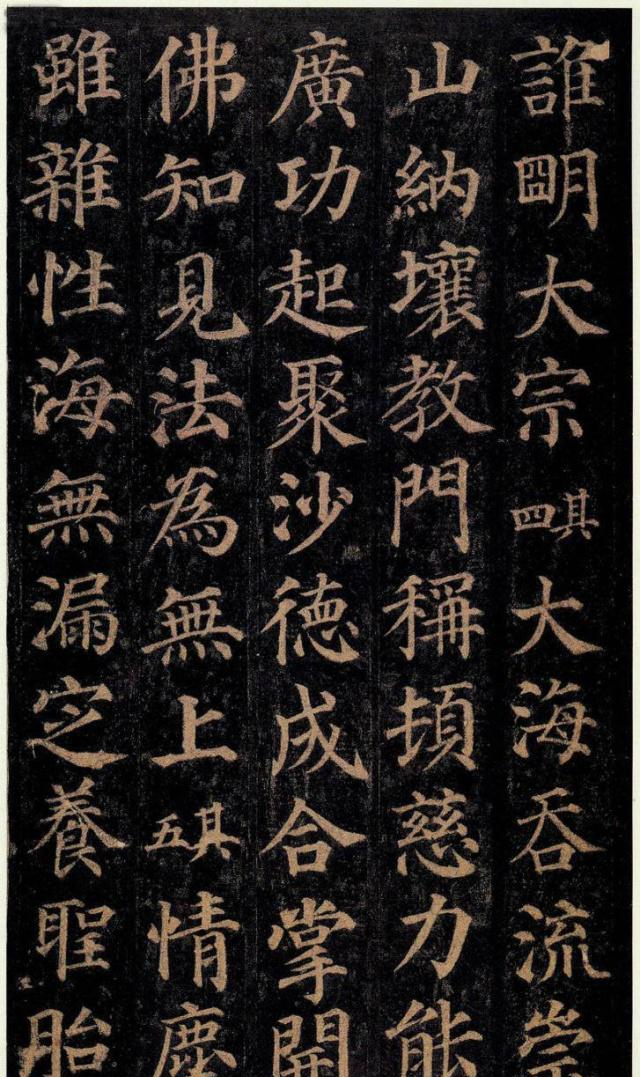 誰朙大宗其四大海吞流崇
山納壤教門稱頓慈力能
廣功起聚沙德成合掌開
佛知見法為無上其五情塵
雖雜性海無漏定養聖胎